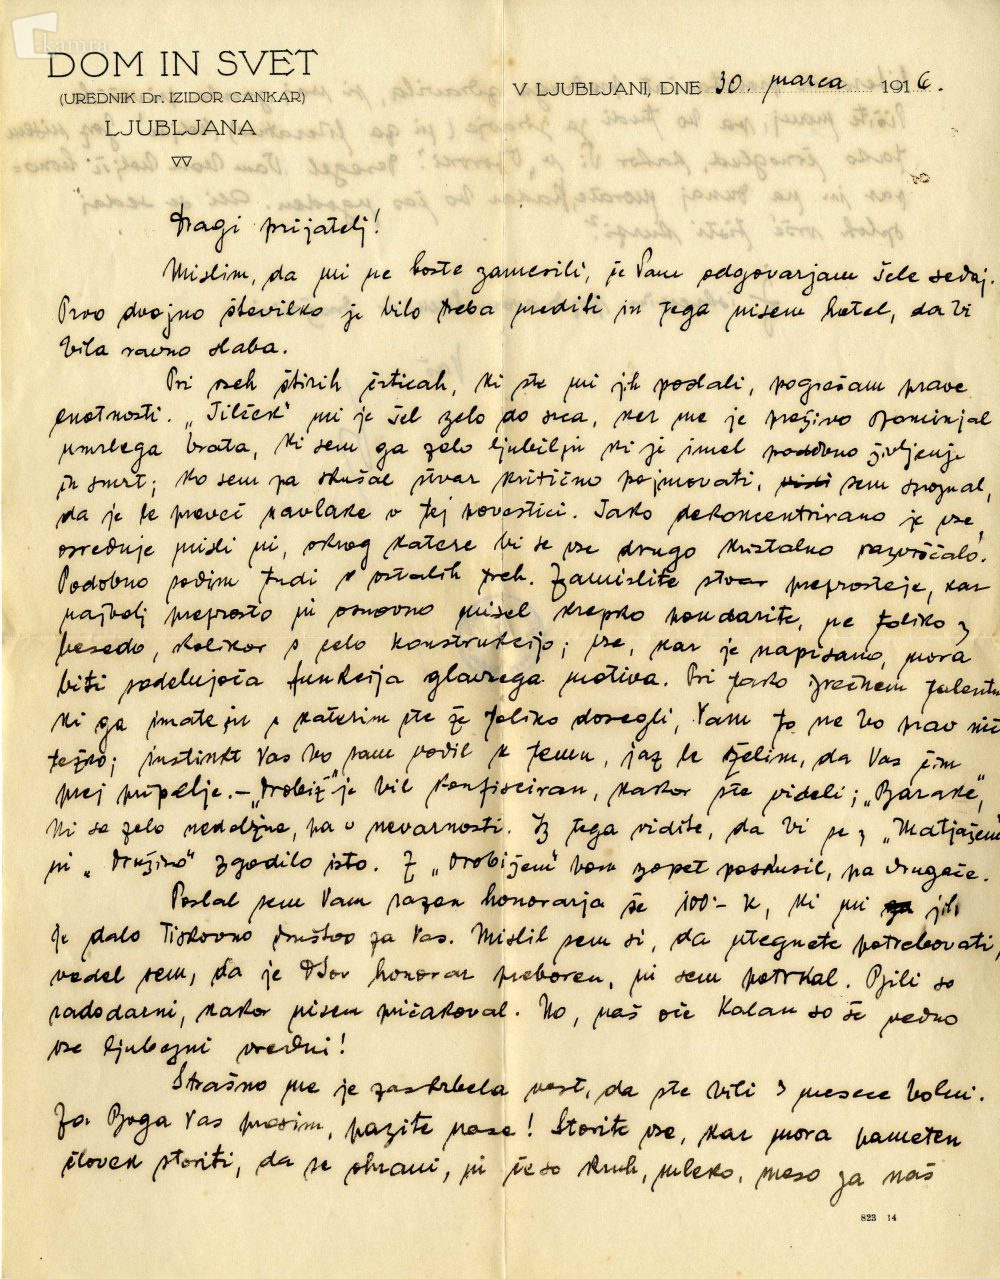 kamra
DOM IN SVET
(UREDNIK Dr. IZIDOR CANKAR)
LJUBLJANA
V LJUBLJANI, DNE 30. marca 1916.
Dragi prijatelj!
Mislim, da mi ne boste zamerili, če Vam odgovarjam šele sedaj.
Prvo dvojno številko je bilo treba urediti in tega nisem hotel, da bi
bila ravno slaba.
Pri vseh štirih črticah, ki ste mi jih poslali, pogrešam prave
enotnosti. „Tilček" mi je šel zelo do srca, ker me je preživo spominjal
umrlega brata, ki sem ga zelo ljubil in ki je imel podobno življenje
in smrt; ko sem pa skušal stvar kritično pojmovati, sem spoznal,
da je le preveč navlake v tej novestici. Tako dekoncentrirano je vse,
osrednje misli ni, okrog katere bi se vse drugo kristalno razvrščalo.
Podobno sodim tudi o ostalih treh. Zamislite stvar preprosteje, kar
najbolj preprosto in osnovno misel krepko poudarite, ne toliko z
besedo, kolikor s celo konstrukcijo; vse, kar je napisano, mora
biti sodelujoča funkcija glavnega motiva. Pri tako srečnem talentu
ki ga imate in s katerim ste že toliko dosegli, Vam to ne bo prav nič
težko; instinkt Vas bo sam vodil k temu, jaz le želim, da Vas čim
prej pripelje. – „Drobiž" je bil konfisciran, kakor ste videli; „Barake",
ki so zelo nedolžne, pa v nevarnosti. Iz tega vidite, da bi se z „Matjažem"
in „Družino" zgodilo isto. Z „Drobižem" bom zopet poskusil, pa drugače.
Poslal sem Vam razen honorarja še 100·– K, ki mi jih
je dalo Tiskovno društvo za Vas. Mislil sem si, da utegnete potrebovati,
vedel sem, da je DSov honorar preboren, in sem potrkal. Bili so
radodarni, kakor nisem pričakoval. No, naš oče Kalan so še vedno
vse ljubezni vredni!
Strašno me je zaskrbela vest, da ste bili 3 mesece bolni.
Za Boga Vas prosim, pazite nase! Storite vse, kar mora pameten
človek storiti, da se ohrani, in če so kruh, mleko, meso za naš
823 14